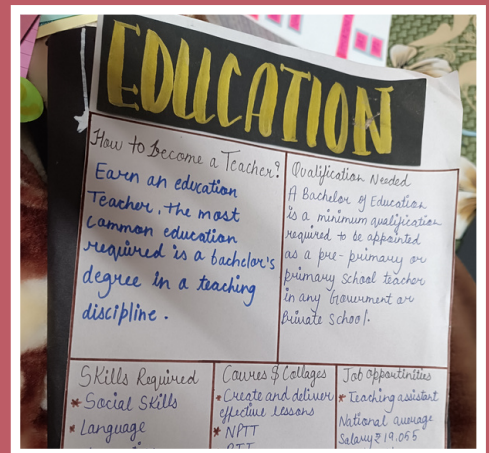 EDUCATION
How to Become a Teacher?
Earn an education
Teacher, the most
common education
required is a bachelor's
degree in a teaching
discipline.
Qualification Needed
A Bachelor of Education
is a minimum qualification
required to be appointed
as a pre-primary or
primary School teacher
in any Gouvment or
Private School.
Skills Required
* Social Skills
* Language
Cources & Collages
* Create and deliver
effective lessons
* NPTT
Job opportinities
* Teaching assistant
National average
Salary ₹ 19,055